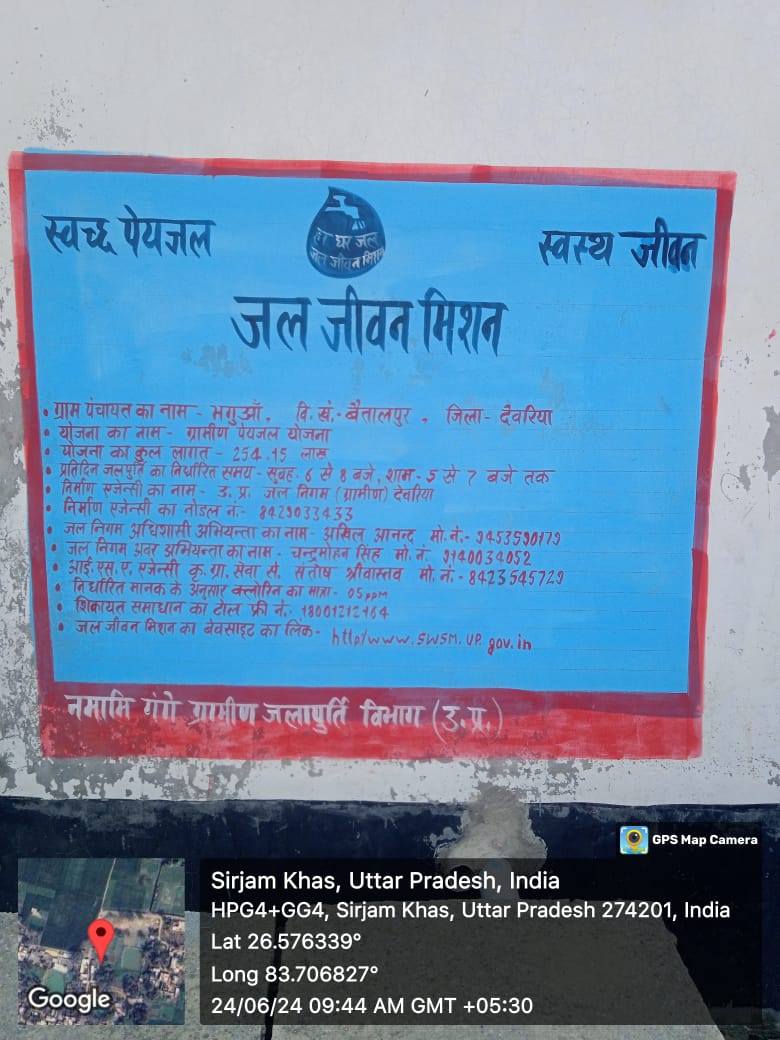 स्वच्छ पेयजल
हर घर जल
जल जीवन मिशन
स्वस्थ जीवन
जल जीवन मिशन
• ग्राम पंचायत का नाम - मगुआँ, वि. खं. - बैतालपुर, जिला - देवरिया
• योजना का नाम - ग्रामीण पेयजल योजना
• योजना का कुल लागत - 254.15 लाख
• प्रतिदिन जलपुर्ति का निर्धारित समय - सुबह. 6 से 8 बजे, शाम - 5 से 7 बजे तक
• निर्माण एजेन्सी का नाम - उ. प्र. जल निगम (ग्रामीण) देवरिया
• निर्माण एजेन्सी का नोडल नं - 8429033433
• जल निगम अधिशासी अभियन्ता का नाम - अखिल आनन्द मो. नं. - 9453590179
• जल निगम अवर अभियन्ता का नाम - चन्द्रमोहन सिंह मो. नं. 9140034052
• आई. एस. ए. एजेन्सी कृ. ग्रा. सेवा सं. संतोष श्रीवास्तव मो. नं. - 8423545729
• निर्धारित मानक के अनुसार क्लोरिन का मात्रा - 05 ppm
• शिकायत समाधान का टोल फ्री नं. - 18001212164
• जल जीवन मिशन का बेवसाइट का लिंक - http/www.SWSM.UP.gov.in
नमामि गंगे ग्रामीण जलापुर्ति विभाग (उ. प्र.)
GPS Map Camera
Sirjam Khas, Uttar Pradesh, India
HPG4+GG4, Sirjam Khas, Uttar Pradesh 274201, India
Lat 26.576339°
Long 83.706827°
24/06/24 09:44 AM GMT +05:30
Google